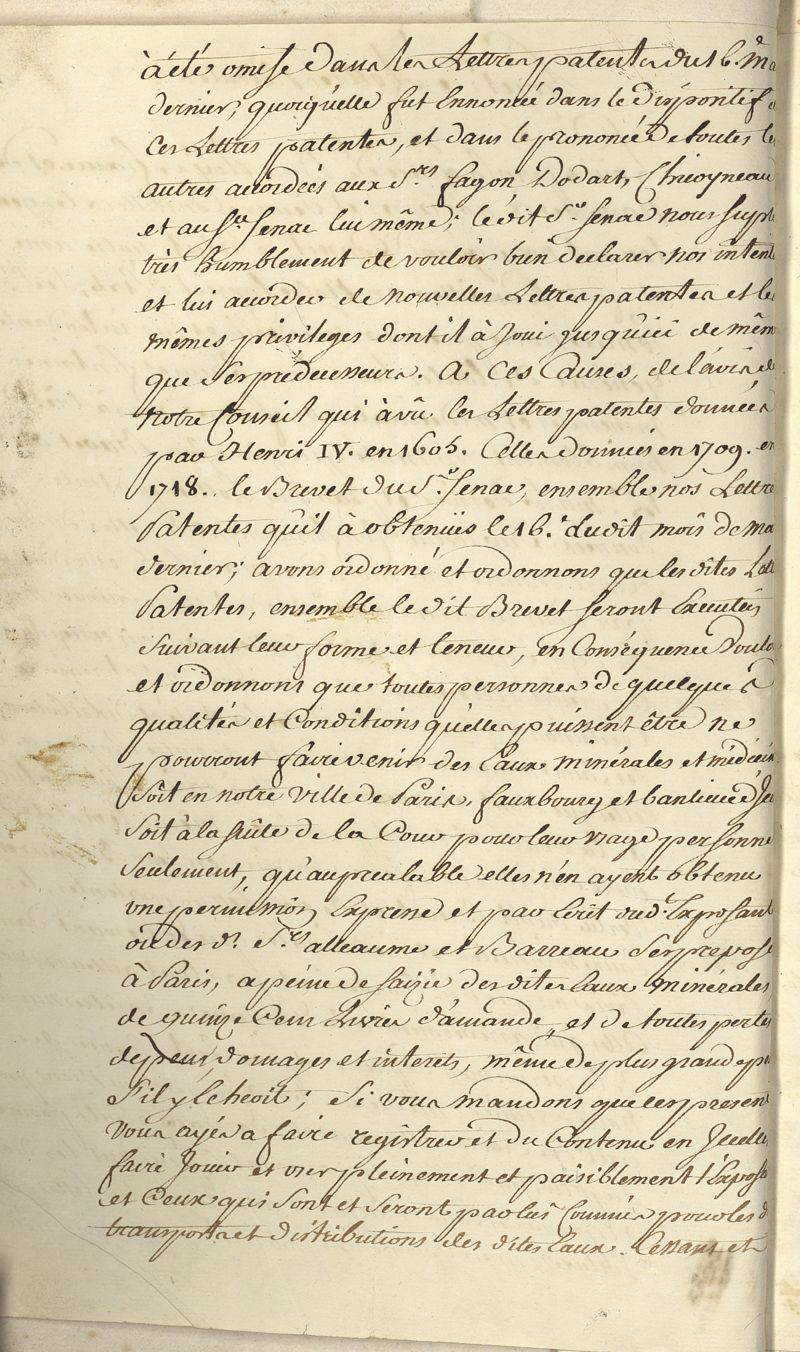 à été omise dans les Lettres patentes du 16. ma
dernier, quoiqu'elle fut Ennoncée dans le dispositif d
Ces Lettres patentes, et dans le prononcé de toutes les
autres accordées aux S.rs fagon Dodart, Chicoyneau
et au S.r Senac lui même; le dit S.r Senac nous supl
très humblement de vouloir bien declarer nos intent
et lui accorder de nouvelles Lettres patentes et les
mêmes privileges dont il à Joui jusqu'ici de mêm
que Ses prédecesseurs. A Ces Causes, de l'avis de
notre Conseil qui à vû les Lettres patentes données
par Henri IV. en 1605. Celles données en 1709. en
1718. le Brevet du S.r Senac, ensemble nos Lettre
Patentes qu'il à obtenües le 16.e du dit mois de ma
dernier; avons ordonné et ordonnons que les dites Lett
Patentes, ensemble le dit Brevet Seront Executés
Suivant leur forme et teneur, en Conséquence Voulo
et ordonnons que toutes personnes de quelques
qualités et Conditions qu'elles puissent être ne
pourront faire venir des Eaux minérales et médecin
Soit en notre Ville de Paris, fauxbourg et banlieue d'Ice
Soit à la Suite de la Cour pour leur usage personne
Seulement, qu'aupréalable elles n'en ayent obtenu
une permission Expresse et par Ecrit du d.t Exposant
ou des d. S.rs alleaume et Barreau Ses prepose
à Paris, a peine de Saizie des dites Eaux minérales
de quinze Cens Livres d'amande, et de toutes pertes
dommages et interets, même de plus grandes pe
S'il y Echeoit; Si vous mandons que ces present
Vous ayés a faire registrer et du Contenu en Jcelles
faire Jouir et user pleinement et paisiblement l'Expos
et Ceux qui Sont et Seront par lui Commis pour les d
transports et distributions des dites Eaux. Cessant et